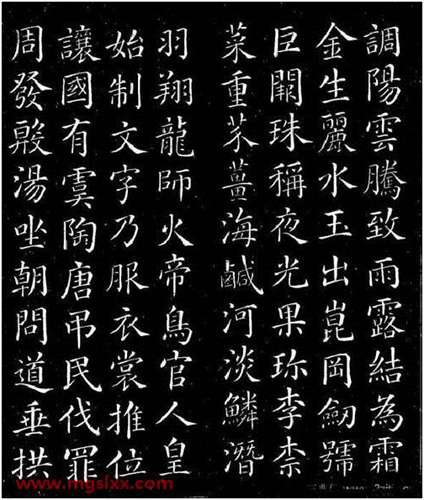 調陽雲騰致雨露結為霜
金生麗水玉出崑岡劒號
巨闕珠稱夜光果珎李柰
菜重芥薑海鹹河淡鱗潛
羽翔龍師火帝鳥官人皇
始制文字乃服衣裳推位
讓國有虞陶唐吊民伐罪
周發殷湯坐朝問道垂拱
www.mgslxx.com